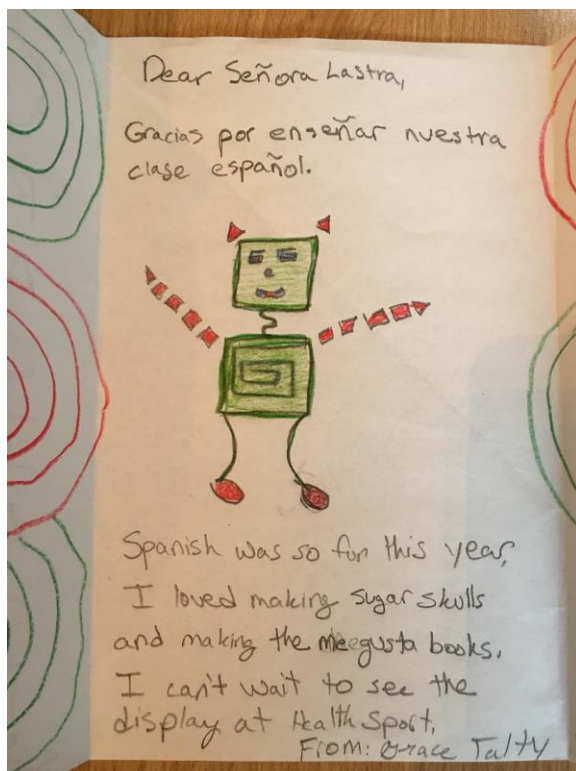 Dear Señora Lastra,
Gracias por enseñar nuestra
clase español.
Spanish was so fun this year,
I loved making sugar skulls
and making the me gusta books.
I can't wait to see the
display at Health Sport.
From: Grace Talty